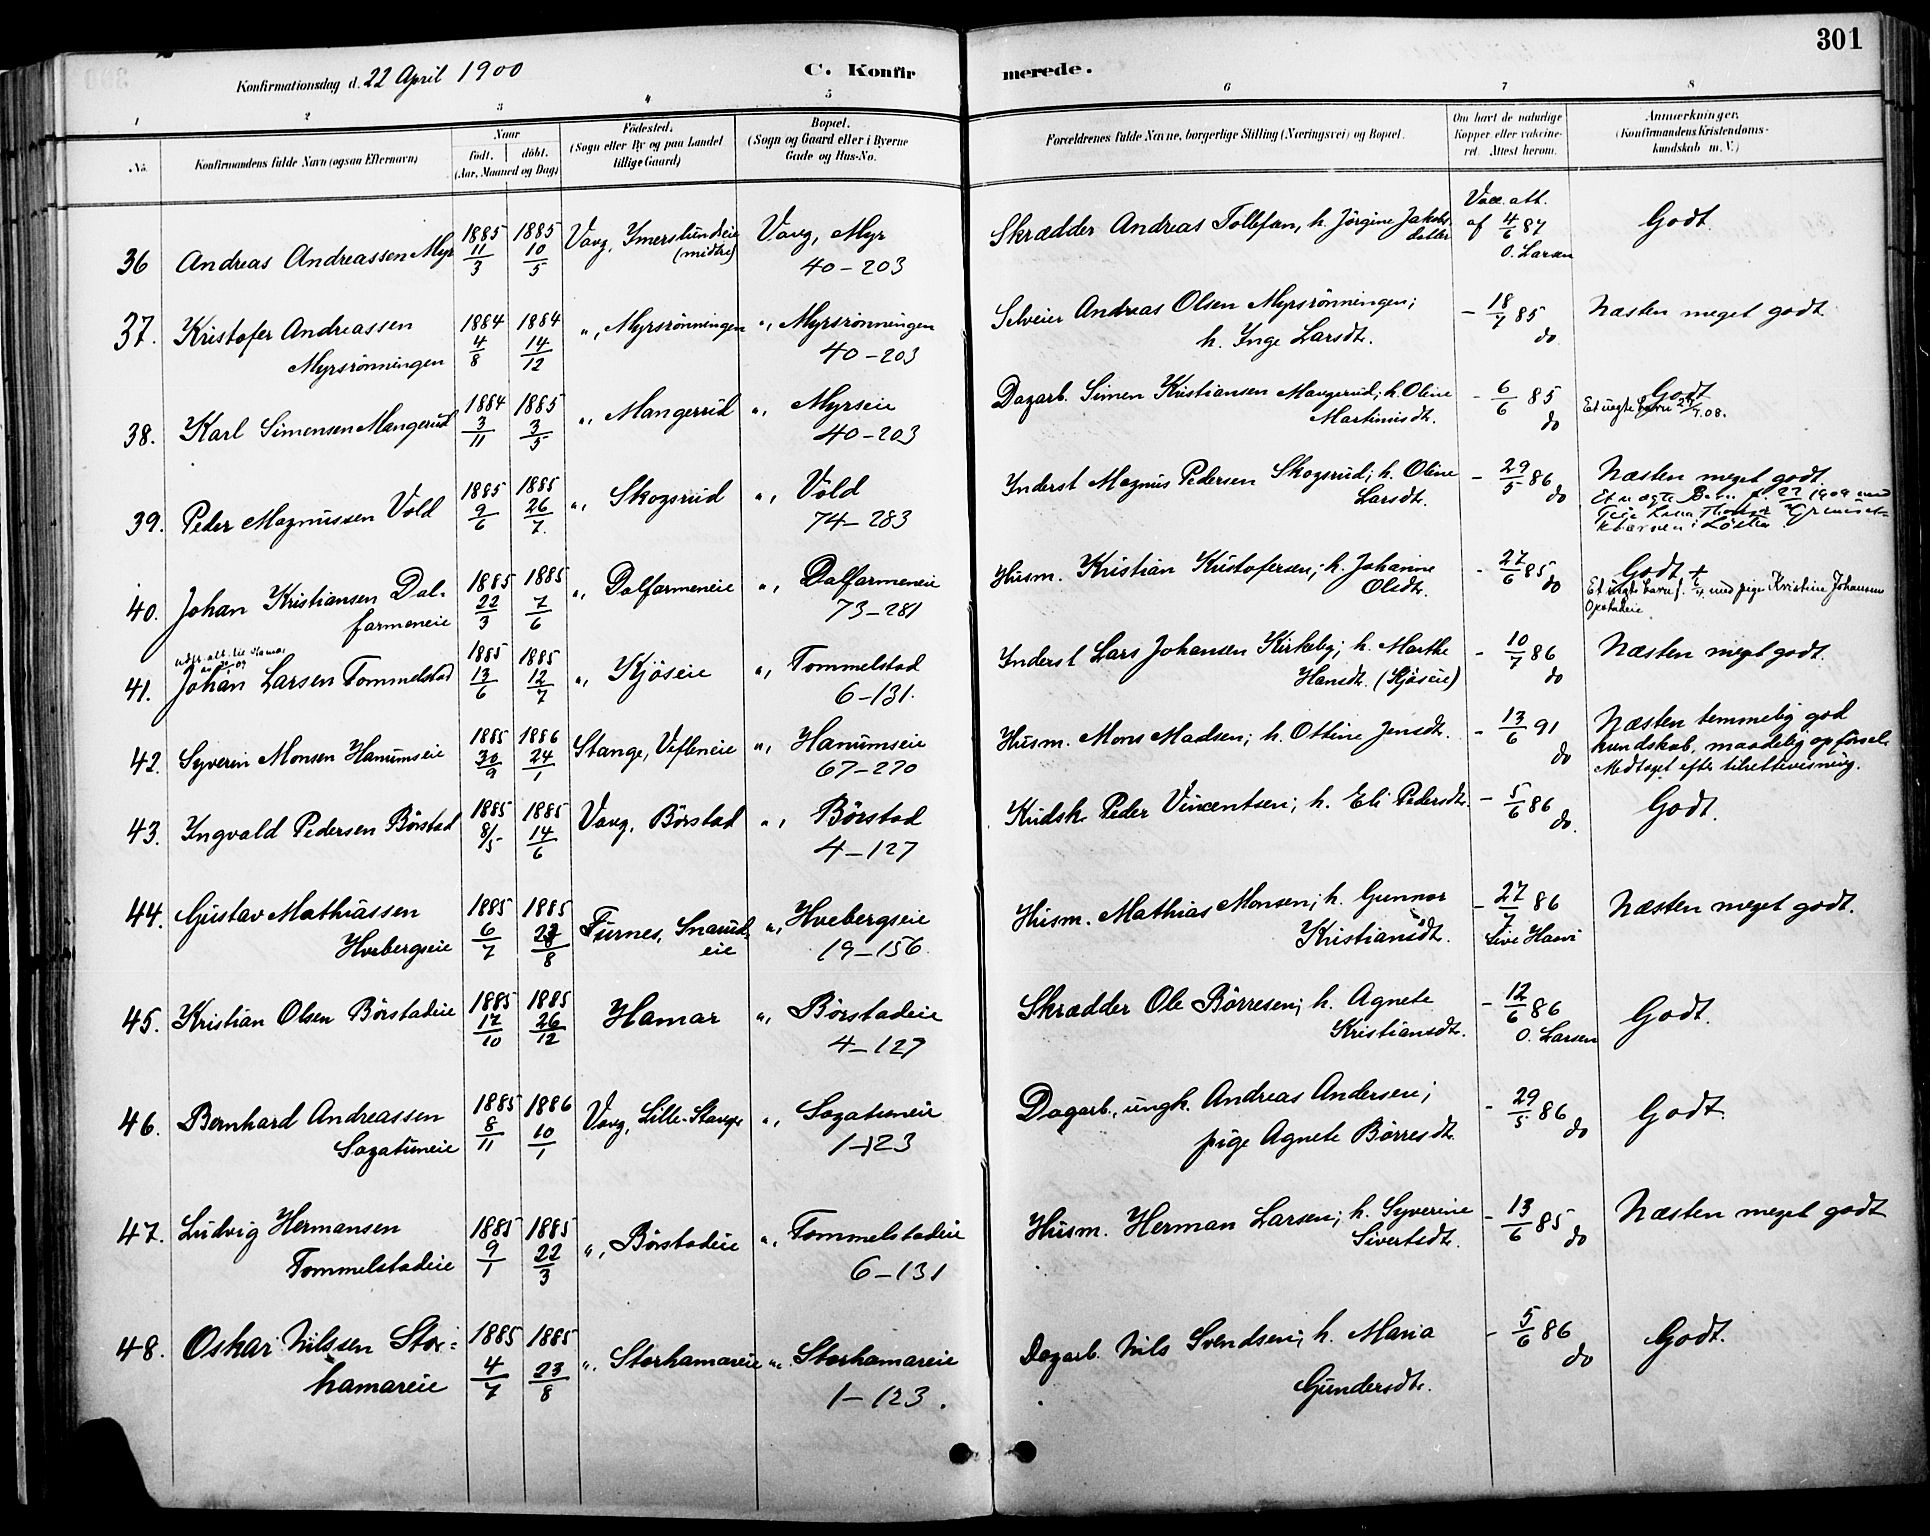 301
Konfirmationsdag d. 22 April 1900
C. Konfirmerede.
1 2 3 4 5 6 7 8
No.
Konfirmandens fulde Navn (ogsaa Efternavn)
Naar
født. døbt.
(Aar, Maaned og Dag)
Fødested.
(Sogn eller By og paa Landet
tillige Gaard)
Bopæl.
(Sogn og Gaard eller i Byerne
Gade og Hus-No.
Forældrenes fulde Navne, borgerlige Stilling (Næringsvei) og Bopæl.
Om havt de naturlige
Kopper eller vaccine-
ret. Attest herom.
Anmærkninger.
(Konfirmandens Kristendoms-
kundskab m. V.)
36 Andreas Andreassen Myr 1885 11/3 1885 10/5 Vang, Imerslundeie (midtre) Vang, Myr 40-203
Skrædder Andreas Tollefsen, h. Jørgine Jakobsdatter Vacc. att. af 4/6 87 O. Larsen Godt.
37. Kristofer Andreassen Myrsrønningen 1884 4/8 1884 14/12 ", Myrsrønningen ", Myrsrønningen 40-203
Selveier Andreas Olsen Myrsrønningen; h. Inge Larsdtr. - 18/7 85 do Næsten meget godt
38. Karl Simensen Mangerud 1884 3/11 1885 3/5 ", Mangerud ", Myrseie 40-203
Dagarb. Simen Kristiansen Mangerud; h. Oline Martinusdtr. - 6/6 85 do Godt
Et uægte barn 08.
39. Peder Magnussen Vold 1885 9/6 1885 26/7 ", Skogsrud ", Vold 74-283
Inderst Magnus Pedersen Skogsrud; h. Oline Larsdtr. - 29/5 86 do Næsten meget godt.
40. Johan Kristiansen Dalfarmeneie 1885 22/3 1885 7/6 ", Dalfarmeneie ", Dalfarmeneie 73-281
Husm. Kristian Kristofersen; h. Johanne Olsdtr. - 27/6 85 do Godt +
Et uægte barn f. med pige Kristine Johansen
41. Johan Larsen Tommelstad 1885 13/6 1885 12/7 ", Kjøseie ", Tommelstad 6-131.
Inderst Lars Johansen Kirkeby; h. Marthe Hansdtr. (Kjøseie) - 10/7 86 do Næsten meget godt.
42. Syverin Monsen Hanumseie 1885 30/9 1886 24/1 Stange, Vefleneie ", Hanumseie 67-270
Husm. Mons Madsen; h. Ottine Jensdtr. - 13/6 91 do Næsten temmelig god
kundskab, maadelig opførsel.
Medtaget efter tilrettevisning.
43. Ingvald Pedersen Børstad 1885 8/5 1885 14/6 Vang, Børstad ", Børstad 4-127
Kudsk Peder Vincentsen; h. Eli Pedersdtr. - 5/6 86 do. Godt.
44. Gustav Mathiassen Hvebergseie 1885 6/7 1885 23/8 Furnes, Snarudeie ", Hvebergseie 19-156.
Husm. Mathias Monsen; h. Gunnor Kristiansdtr. - 27/7 86 Næsten meget godt.
45. Kristian Olsen Børstadeie 1885 12/10 1885 26/12 Hamar ", Børstadeie 4-127
Skrædder Ole Børresen; h. Agnete Kristiansdtr. - 12/6 86 O. Larsen Godt.
46. Bernhard Andreassen Sagatuneie 1885 8/11 1886 10/1 Vang, Lille-Stange ", Sagatuneie 1-123
Dagarb., ungk. Andreas Andersen; pige Agnete Børresdtr. - 29/5 86 do Godt
47. Ludvig Hermansen Tommelstadeie 1885 9/1 1885 22/3 ", Børstadeie ", Tommelstadeie 6-131
Husm. Herman Larsen; h. Syverine Sivertsdtr. - 13/6 85 do Næsten meget godt
48. Oskar Nilssen Storhamareie 1885 4/7 1885 23/8 ", Storhamareie ", Storhamareie 1-123.
Dagarb. Nils Svendsen; h. Maria Gundersdtr. - 5/6 86 do Godt.